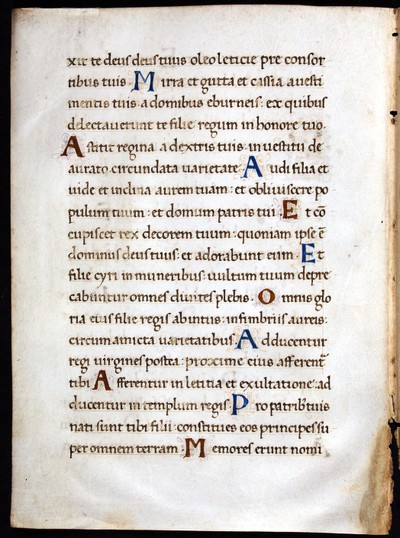 xit te deus deus tuus oleo leticie pre consor
tibus tuis. Mirra et gutta et cassia a uesti
mentis tuis a domibus eburneis: ex quibus
delectauerunt te filie regum in honore tuo.
Astitit regina a dextris tuis in uestitu de
aurato circundata uarietate. Audi filia et
uide et inclina aurem tuam: et obliuiscere po
pulum tuum: et domum patris tui. Et cō
cupiscet rex decorem tuum: quoniam ipse ē
dominus deus tuus: et adorabunt eum. Et
filie tyri in muneribus: uultum tuum depre
cabuntur omnes diuites plebis. Omnis glo
ria eius filie regis abintus: in fimbriis aureis:
circum amicta uarietatibus. Adducentur
regi uirgines postea: proxime eius afferent̄
tibi. Afferentur in letitia et exultatione: ad
ducentur in templum regis. Pro patrib' tuis
nati sunt tibi filii: constitues eos principes su
per omnem terram. Memores erunt nomi